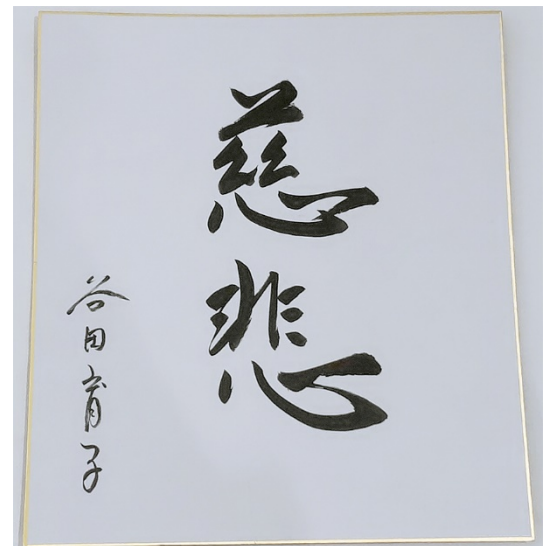 慈悲
谷田育子